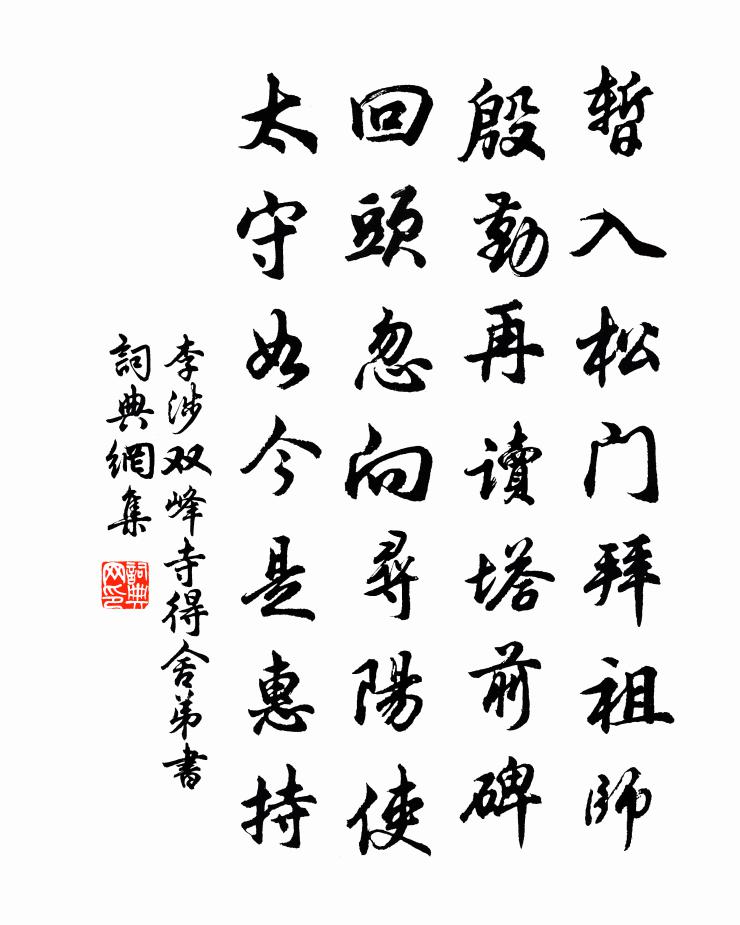 暫入松门拜祖師
殷勤再讀塔前碑
回頭忽向尋陽使
太守如今是惠持
李涉双峰寺得舍弟書
詞典網集
詞典网印